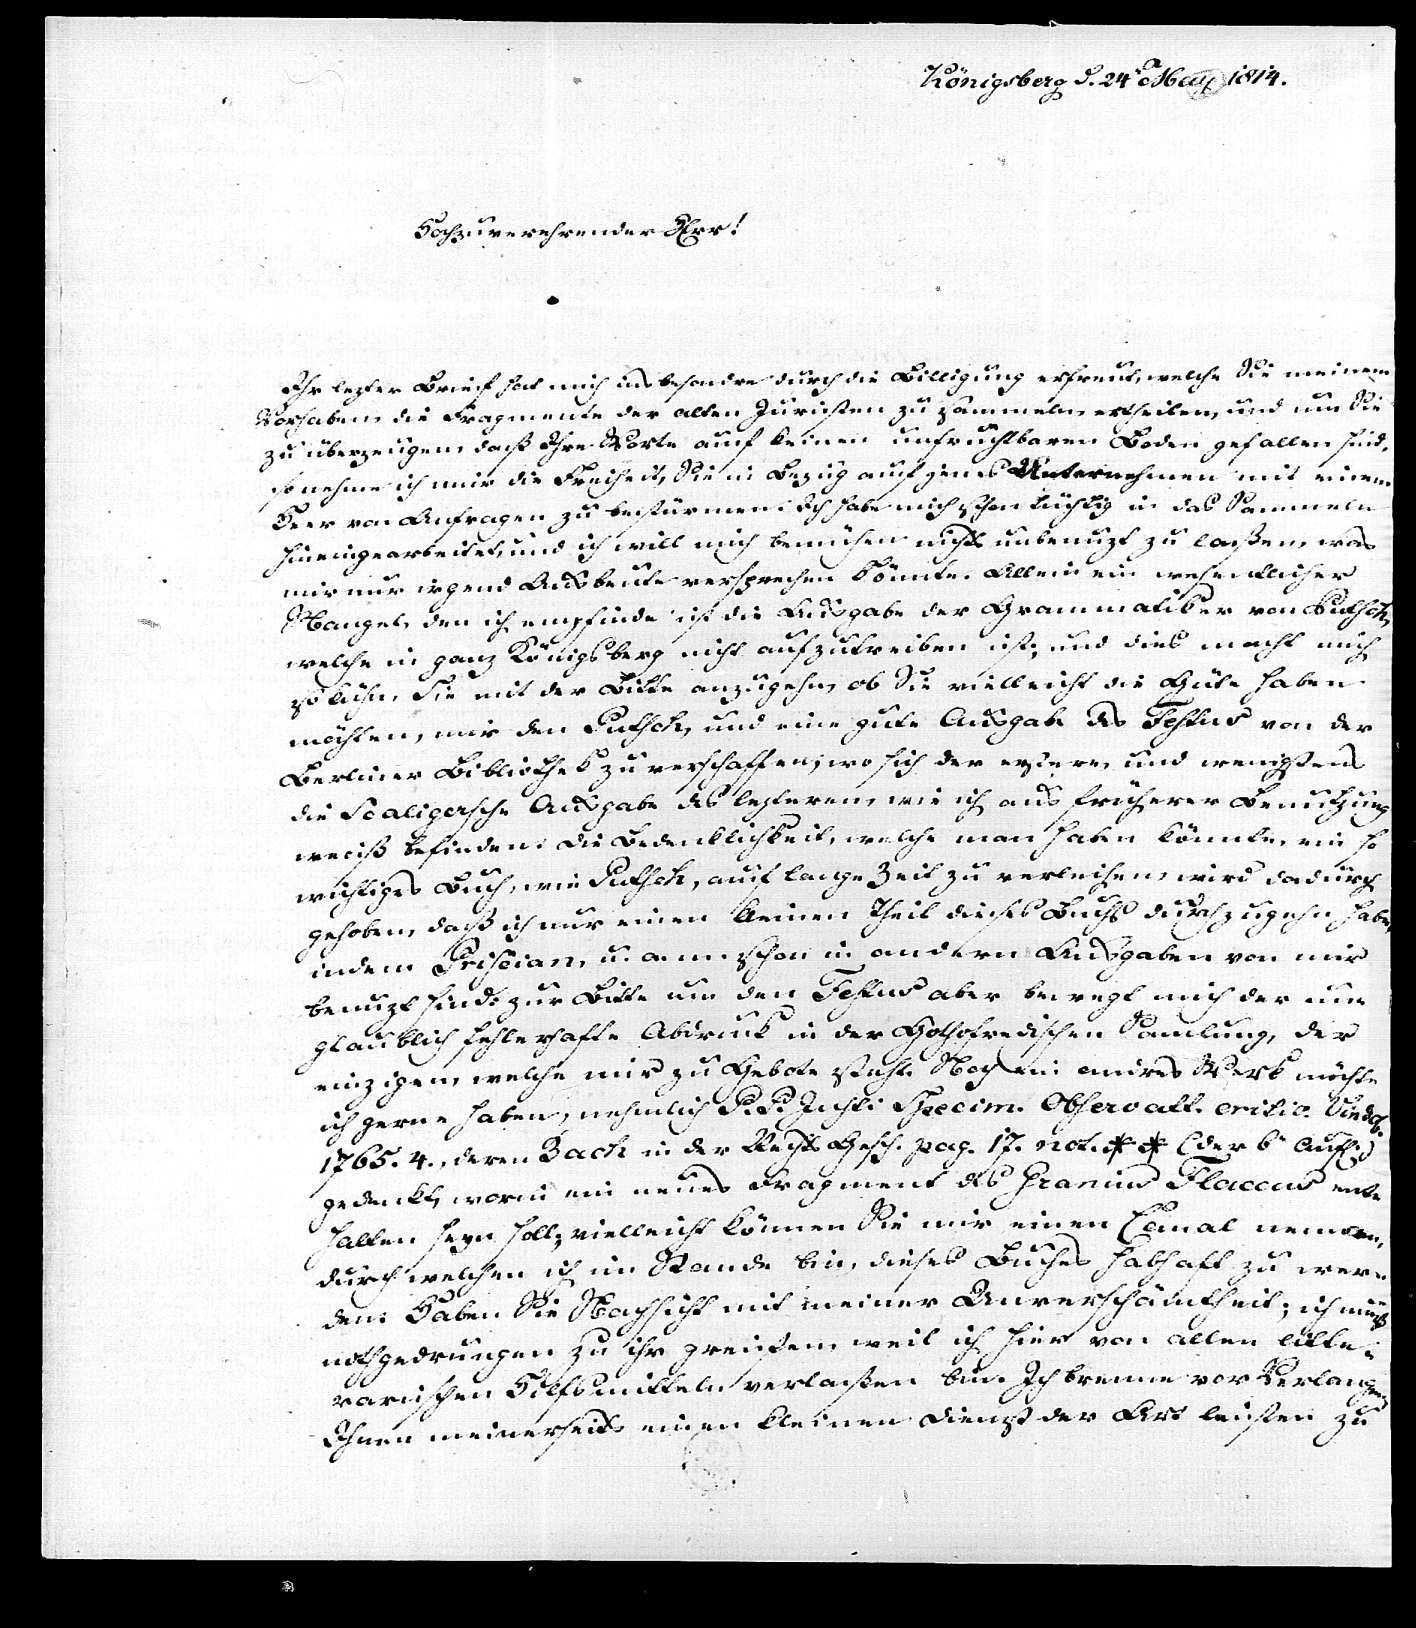 Königsberg d. 24n May 1814.
Hochzuverehrender Herr!
Ihr lezter Brief hat mich ins besondre durch die Billigung erfreut, welche Sie meinem
Vorhaben, die Fragmente der alten Juristen zu sammeln, ertheilen, und um Sie
zu überzeugen, daß Ihre Worte auf keinen unfruchtbaren Boden gefallen sind,
so nehme ich mir die Freiheit, Sie in Bezug auf jenes Unternehmen mit einem
Heer von Anfragen zu bestürmen. Ich habe mich schon tüchtig in das Sammeln
hineingearbeitet, und ich will mich bemühen nichts unbenuzt zu laßen, was
mir nur irgend Ausbeute versprechen könnte. Allein ein wesentlicher
Mangel, den ich empfinde ist die Ausgabe der Grammatiker von Putsch,
welche in ganz Königsberg nicht aufzutreiben ist; und dies macht mich
so kühn, Sie mit der Bitte anzugehn, ob Sie vielleicht die Güte haben
möchten, mir den Putsch, und eine gute Ausgabe des Festus von der
Berliner Bibliothek zu verschaffen, wo sich der erstere, und wenigstens
die Scaligersche Ausgabe des lezteren, wie ich aus früherer Benutzung
weiß befinden. Die Bedenklichkeit, welche man haben könnte, ein so
wichtiges Buch, wie Putsch, auf lange Zeit zu verleihen, wird dadurch
gehoben, daß ich nur einen kleinen Theil dieses Buchs durchzugehn habe,
indem Priscian, u. a. m. schon in andern Ausgaben von mir
benuzt sind: zur Bitte um den Festus aber bewegt mich der un-
glaublich fehlerhafte Abdruck in der Gothofredischen Samlung, der
einzigen, welche mir zu Gebote steht. Noch ein andres Werk möchte
ich gerne haben, nehmlich P. P. Justi Specim. Observatt. critic. Vindob.
1765. 4., deren Bach in der Rechts Gesch. pag. 17. not. ** (der 6n Aufl.)
gedenkt, worin ein neues Fragment des Granius Flaccus ent-
halten seyn soll; vielleicht können Sie mir einen Canal nennen,
durch welchen ich im Stande bin, dieses Buches habhaft zu wer-
den. Haben Sie Nachsicht mit meiner Unverschämtheit; ich muß
nothgedrungen zu ihr greifen, weil ich hier von allen litte-
rarischen Hilfsmitteln verlaßen bin. Ich brenne vor Verlangen
Ihnen meinerseits einen kleinen Dienst der Art leisten zu